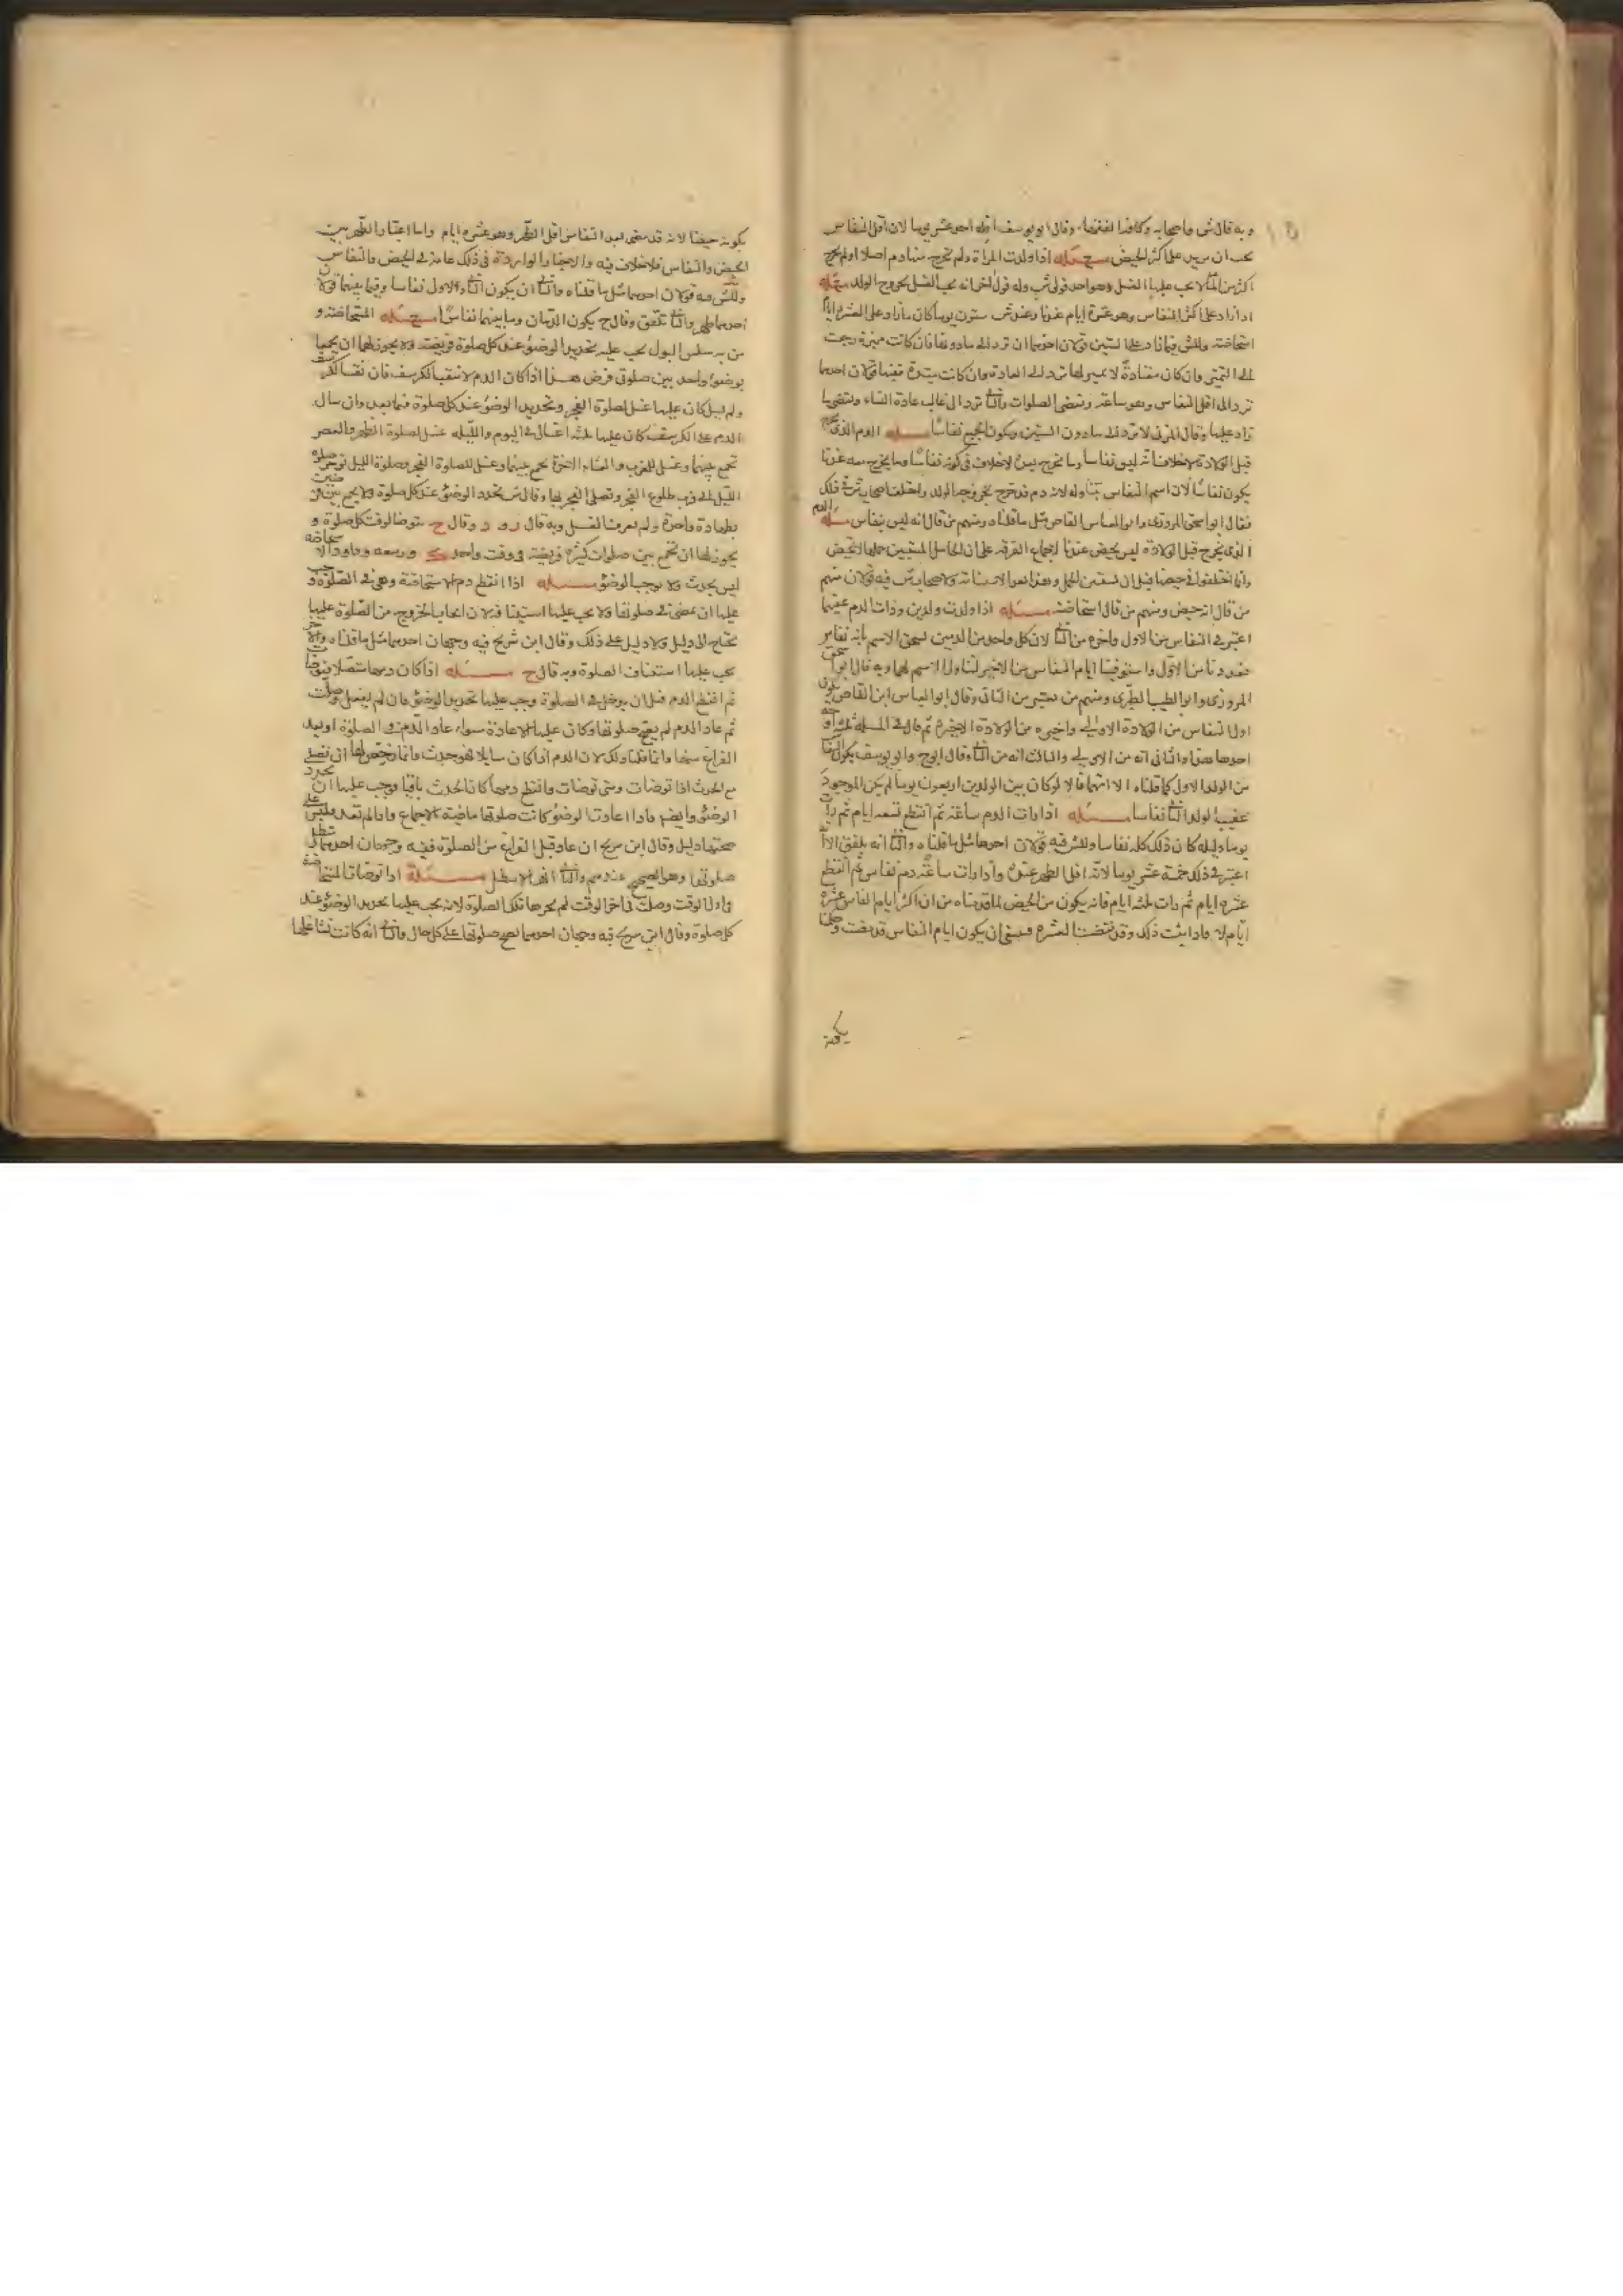 وبه قال ش واصحابه وكافة الفقهاء وقال ابو يوسف اقله احد عشر يوما لان اقل النفاس
يجب ان يزيد على اكثر الحيض مسئله اذا ولدت المراة ولم تخرج منها دم اصلا او لم يخرج
اكثر من الماء لا يجب عليها الغسل وهو احد قولى ش وله قول اخر انه يجب الغسل بخروج الولد مسئله
اذا زاد على اكثر النفاس وهو عشرة ايام عندنا وعند ش ستون يوما كان ما زاد على العشرة ايام
استحاضة وللش فيما زاد على الستين قولان احدهما ان ترد الى ما دونها فان كانت مميزة رجعت
الى التمييز وان كان معتادة لا تمييز لها ترد الى العادة وان كانت مبتدئة ففيها قولان احدهما
ترد الى اقل النفاس وهو ساعة وتقضى الصلوات والثانى ترد الى غالب عادة النساء وتقضى ما
زاد عليها وقال المزنى لا ترد الى ما دون الستين ويكون الجميع نفاسا مسئله الدم الذى يخرج
قبل الولادة لا خلاف انه ليس نفاسا وما يخرج بعده لا خلاف فى كونه نفاسا وما يخرج معه عندنا
يكون نفاسا لان اسم النفاس يتناوله لانه دم قد خرج بخروج الولد واختلف اصحاب ش فى ذلك
فقال ابو اسحق المروزى وابو العباس القاص مثل ما قلناه ومنهم من قال انه ليس بنفاس مسئله الدم
الذى يخرج قبل الولادة ليس بحيض عندنا اجماع الفرقة على ان الحامل المستبين حملها لا تحيض
وانما اختلفوا فى حيضها قبل ان تستبين الحمل وهذا بعد الاستبانة ولاصحاب ش فيه قولان منهم
من قال انه حيض ومنهم من قال استحاضة مسئله اذا ولدت ولدين ورات الدم عقيبهما
اعتبر فى النفاس من الاول واخره من الثانى لان كل واحد من الدمين يستحق الاسم بانه نفاس
فعددنا من الاول واستوفينا ايام النفاس من الاخير لتناول الاسم لهما وبه قال ابو اسحق
المروزى وابو الطيب الطبرى ومنهم من يعتبر من الثانى وقال ابو العباس ابن القاص يكون
اول النفاس من الولادة الاولى واخره من الولادة الاخيرة ثم قال فى المسئله ثلثة اوجه
احدها هذا والثانى انه من الاولى والثالث انه من الثانى وقال ابو ح وابو يوسف يكون النفاس
من الولد الاول كما قلناه الا انهما قالا لو كان بين الولدين اربعون يوما لم يكن الموجود
عقيب الولد الثانى نفاسا مسئله اذا رات الدم ساعة ثم انقطع تسعة ايام ثم رات
يوما وليلة كان ذلك كله نفاسا وللش فيه قولان احدهما مثل ما قلناه والثانى انه يلفق الا انه
اعتبر فى ذلك خمسة عشر يوما لانه اقل الطهر عنده واذا رات ساعة دم نفاس ثم انقطع
عشرة ايام ثم رات ثلثة ايام فانه يكون من الحيض لما قدمناه من ان اكثر ايام النفاس عشرة
ايام فاذا ثبت ذلك وقد مضت العشرة فينبغى ان يكون ايام النفاس قد مضت وحكمنا
بكونه
بكونه حيضا لانه قد مضى بعد النفاس اقل الطهر وهو عشرة ايام واما اعتبار الطهر بين
الحيض والنفاس فلا خلاف فيه والاخبار الواردة فى ذلك عامة فى الحيض والنفاس
وللش فيه قولان احدهما مثل ما قلناه والثانى ان يكون الثانى والاول نفاسا وفيما بينهما قولان
احدهما طهر والثانى تلفق وقال ح يكون الدمان وما بينهما نفاسا مسئله المستحاضة و
من به سلس البول يجب عليه تجديد الوضوء عند كل صلوة فريضة ولا يجوز لهما ان يجمعا
بوضوء واحد بين صلوتى فرض هذا اذا كان الدم لا يثقب الكرسف فان نقب الكرسف
ولم يسل كان عليها غسل لصلوة الفجر وتجديد الوضوء عند كل صلوة فيما بعد وان سال
الدم على الكرسف كان عليها ثلثة اغسال فى اليوم والليله غسل لصلوة الظهر والعصر
تجمع بينهما وغسل للمغرب والعشاء الاخرة تجمع بينهما وغسل لصلوة الفجر وصلوة الليل تؤخر صلوة
الليل الى قرب طلوع الفجر وتصلى الفجر بها وقال ش تجدد الوضوء عند كل صلوة ولا تجمع بين فرضين
بطهارة واحدة ولم يعرف الغسل وبه قال ر و د وقال ح تتوضا لوقت كل صلوة و
يجوز لها ان تجمع بين صلوات كثيرة فريضة فى وقت واحد ك وربيعه وداود الاستحاضة
ليس بحدث ولا يوجب الوضوء مسئله اذا انقطع دم الاستحاضة وهى فى الصلوة وجب
عليها ان تمضى فى صلوتها ولا يجب عليها استينافها لان ايجاب الخروج من الصلوة عليها
يحتاج الى دليل ولا دليل على ذلك وقال ابن شريح فيه وجهان احدهما مثل ما قلناه والاخر
يجب عليها استيناف الصلوة وبه قال ح مسئله اذا كان دمها متصلا فتوضات
ثم انقطع الدم قبل ان يدخل فى الصلوة وجب عليها تجديد الوضوء فان لم يفعل وصلت
ثم عاد الدم لم يصح صلوتها وكان عليها الاعادة سواء عاد الدم فى الصلوة او بعد
الفراغ منها وانما قلنا ذلك لان الدم اذا كان سايلا فهو حدث وانما رخص لها ان تصلى
مع الحدث اذا توضات ومتى توضات وانقطع دمها كان الحدث باقيا فوجب عليها ان تجدد
الوضوء وايضا فاذا اعادت الوضوء كانت صلوتها ماضية بالاجماع واذا لم تعد فليس على
صحتها دليل وقال ابن سريح ان عاد قبل الفراغ من الصلوة ففيه وجهان احدهما تبطل
صلوتها وهو الصحيح عندهم والثانى انها لا تبطل مسئله اذا توضات المستحاضة
فى اول الوقت وصلت فى اخر الوقت لم يجزها تلك الصلوة لانه يجب عليها تجديد الوضوء عند
كل صلوة وقال ابن سريح فيه وجهان احدهما يصح صلوتها على كل حال والثانى انه كانت تشاغلها